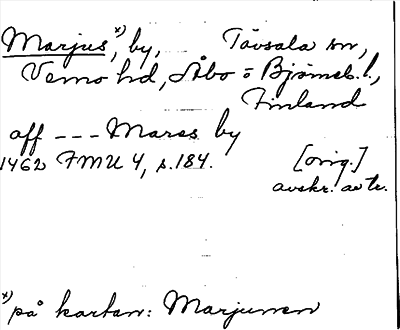 Marjus x), by, Tövsala sn,
Vemo hd, Åbo o Bjömeb. l.,
Finland
aff --- Mares by
1462 FMU 4, s. 184. [orig.]
avskr. av tr.
x) på kartan: Marjunen